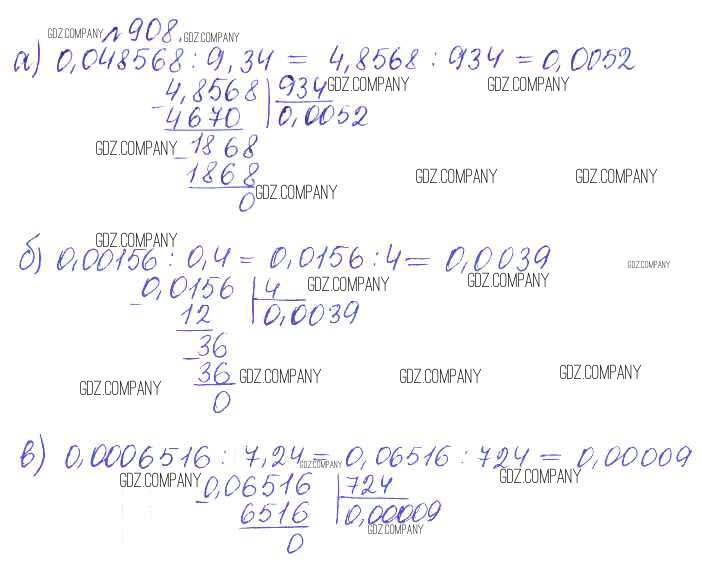 GDZ.COMPANY №908. GDZ.COMPANY
а) 0,048568 : 9,34 = 4,8568 : 934 = 0,0052
4,8568 934 GDZ.COMPANY GDZ.COMPANY
- 4670 0,0052
GDZ.COMPANY - 1868
1868 GDZ.COMPANY GDZ.COMPANY
GDZ.COMPANY
0
GDZ.COMPANY
б) 0,00156 : 0,4 = 0,0156 : 4 = 0,0039 GDZ.COMPANY
- 0,0156 4 GDZ.COMPANY GDZ.COMPANY
12 0,0039
- 36
36 GDZ.COMPANY GDZ.COMPANY GDZ.COMPANY
GDZ.COMPANY 0
в) 0,0006516 : 7,24 = 0,06516 : 724 = 0,00009
GDZ.COMPANY
GDZ.COMPANY - 0,06516 724 GDZ.COMPANY
6516 0,00009
0 GDZ.COMPANY